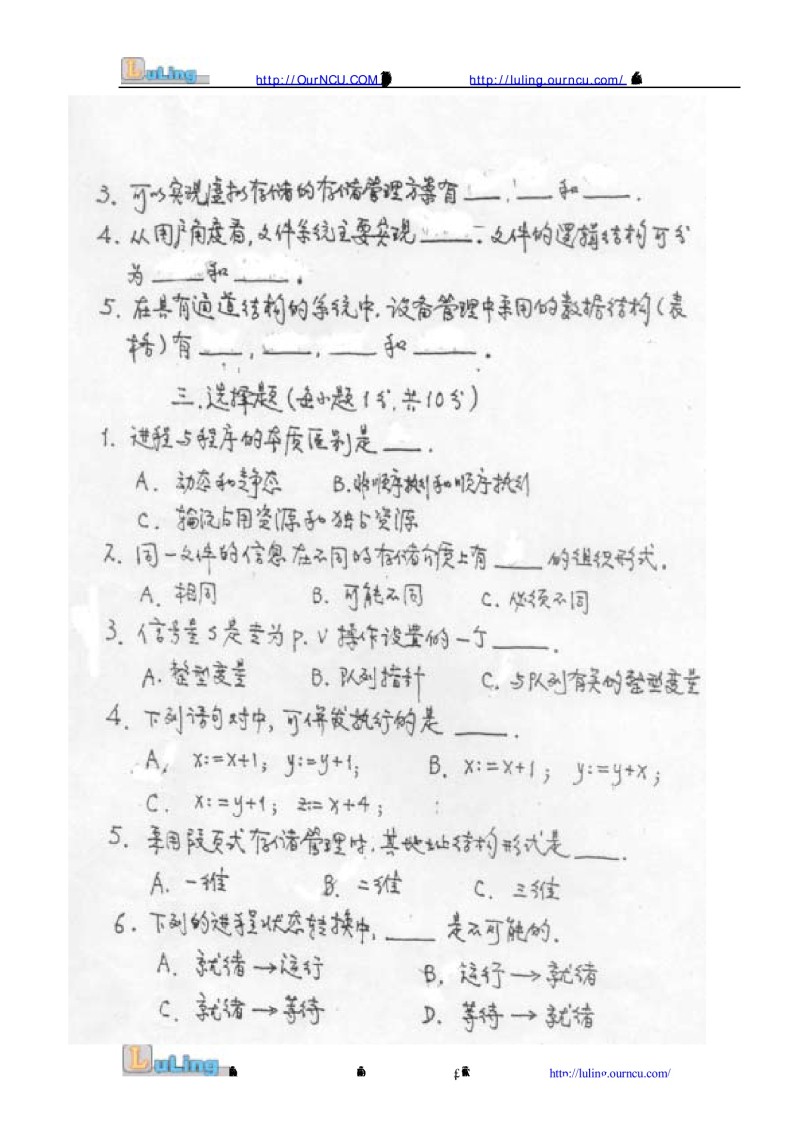 LuLing http://OurNCU.COM http://luling.ourncu.com/
3. 可以实现虚拟存储的存储管理方案有____,____和____.
4. 从用户角度看,文件系统主要实现____. 文件的逻辑结构可分
为____和____.
5. 在具有通道结构的系统中,设备管理中采用的数据结构(表
格)有____,____,____和____.
三.选择题(每小题1分,共10分)
1. 进程与程序的本质区别是____.
A. 动态和静态 B.非顺序执行和顺序执行
C. 轮流占用资源和独占资源
2. 同一文件的信息在不同的存储介质上有____的组织形式.
A. 相同 B. 可能不同 C. 必须不同
3. 信号量S是专为P.V操作设置的一个____.
A. 整型变量 B. 队列指针 C. 与队列有关的整型变量
4. 下列语句对中,可併发执行的是____.
A. x:=x+1; y:=y+1; B. x:=x+1; y:=y+x;
C. x:=y+1; z:=x+4;
5. 采用段页式存储管理时,其地址结构形式是____.
A. 一维 B. 二维 C. 三维
6. 下列的进程状态转换中,____是不可能的.
A. 就绪→运行 B. 运行→就绪
C. 就绪→等待 D. 等待→就绪
LuLing http://luling.ourncu.com/